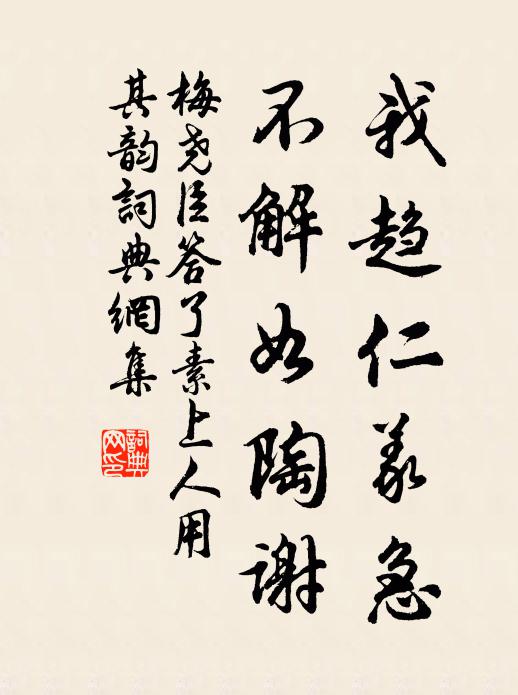 我趋仁义急
不解如陶谢
梅尧臣答了素上人用
其韵詞典網集
詞典
网印